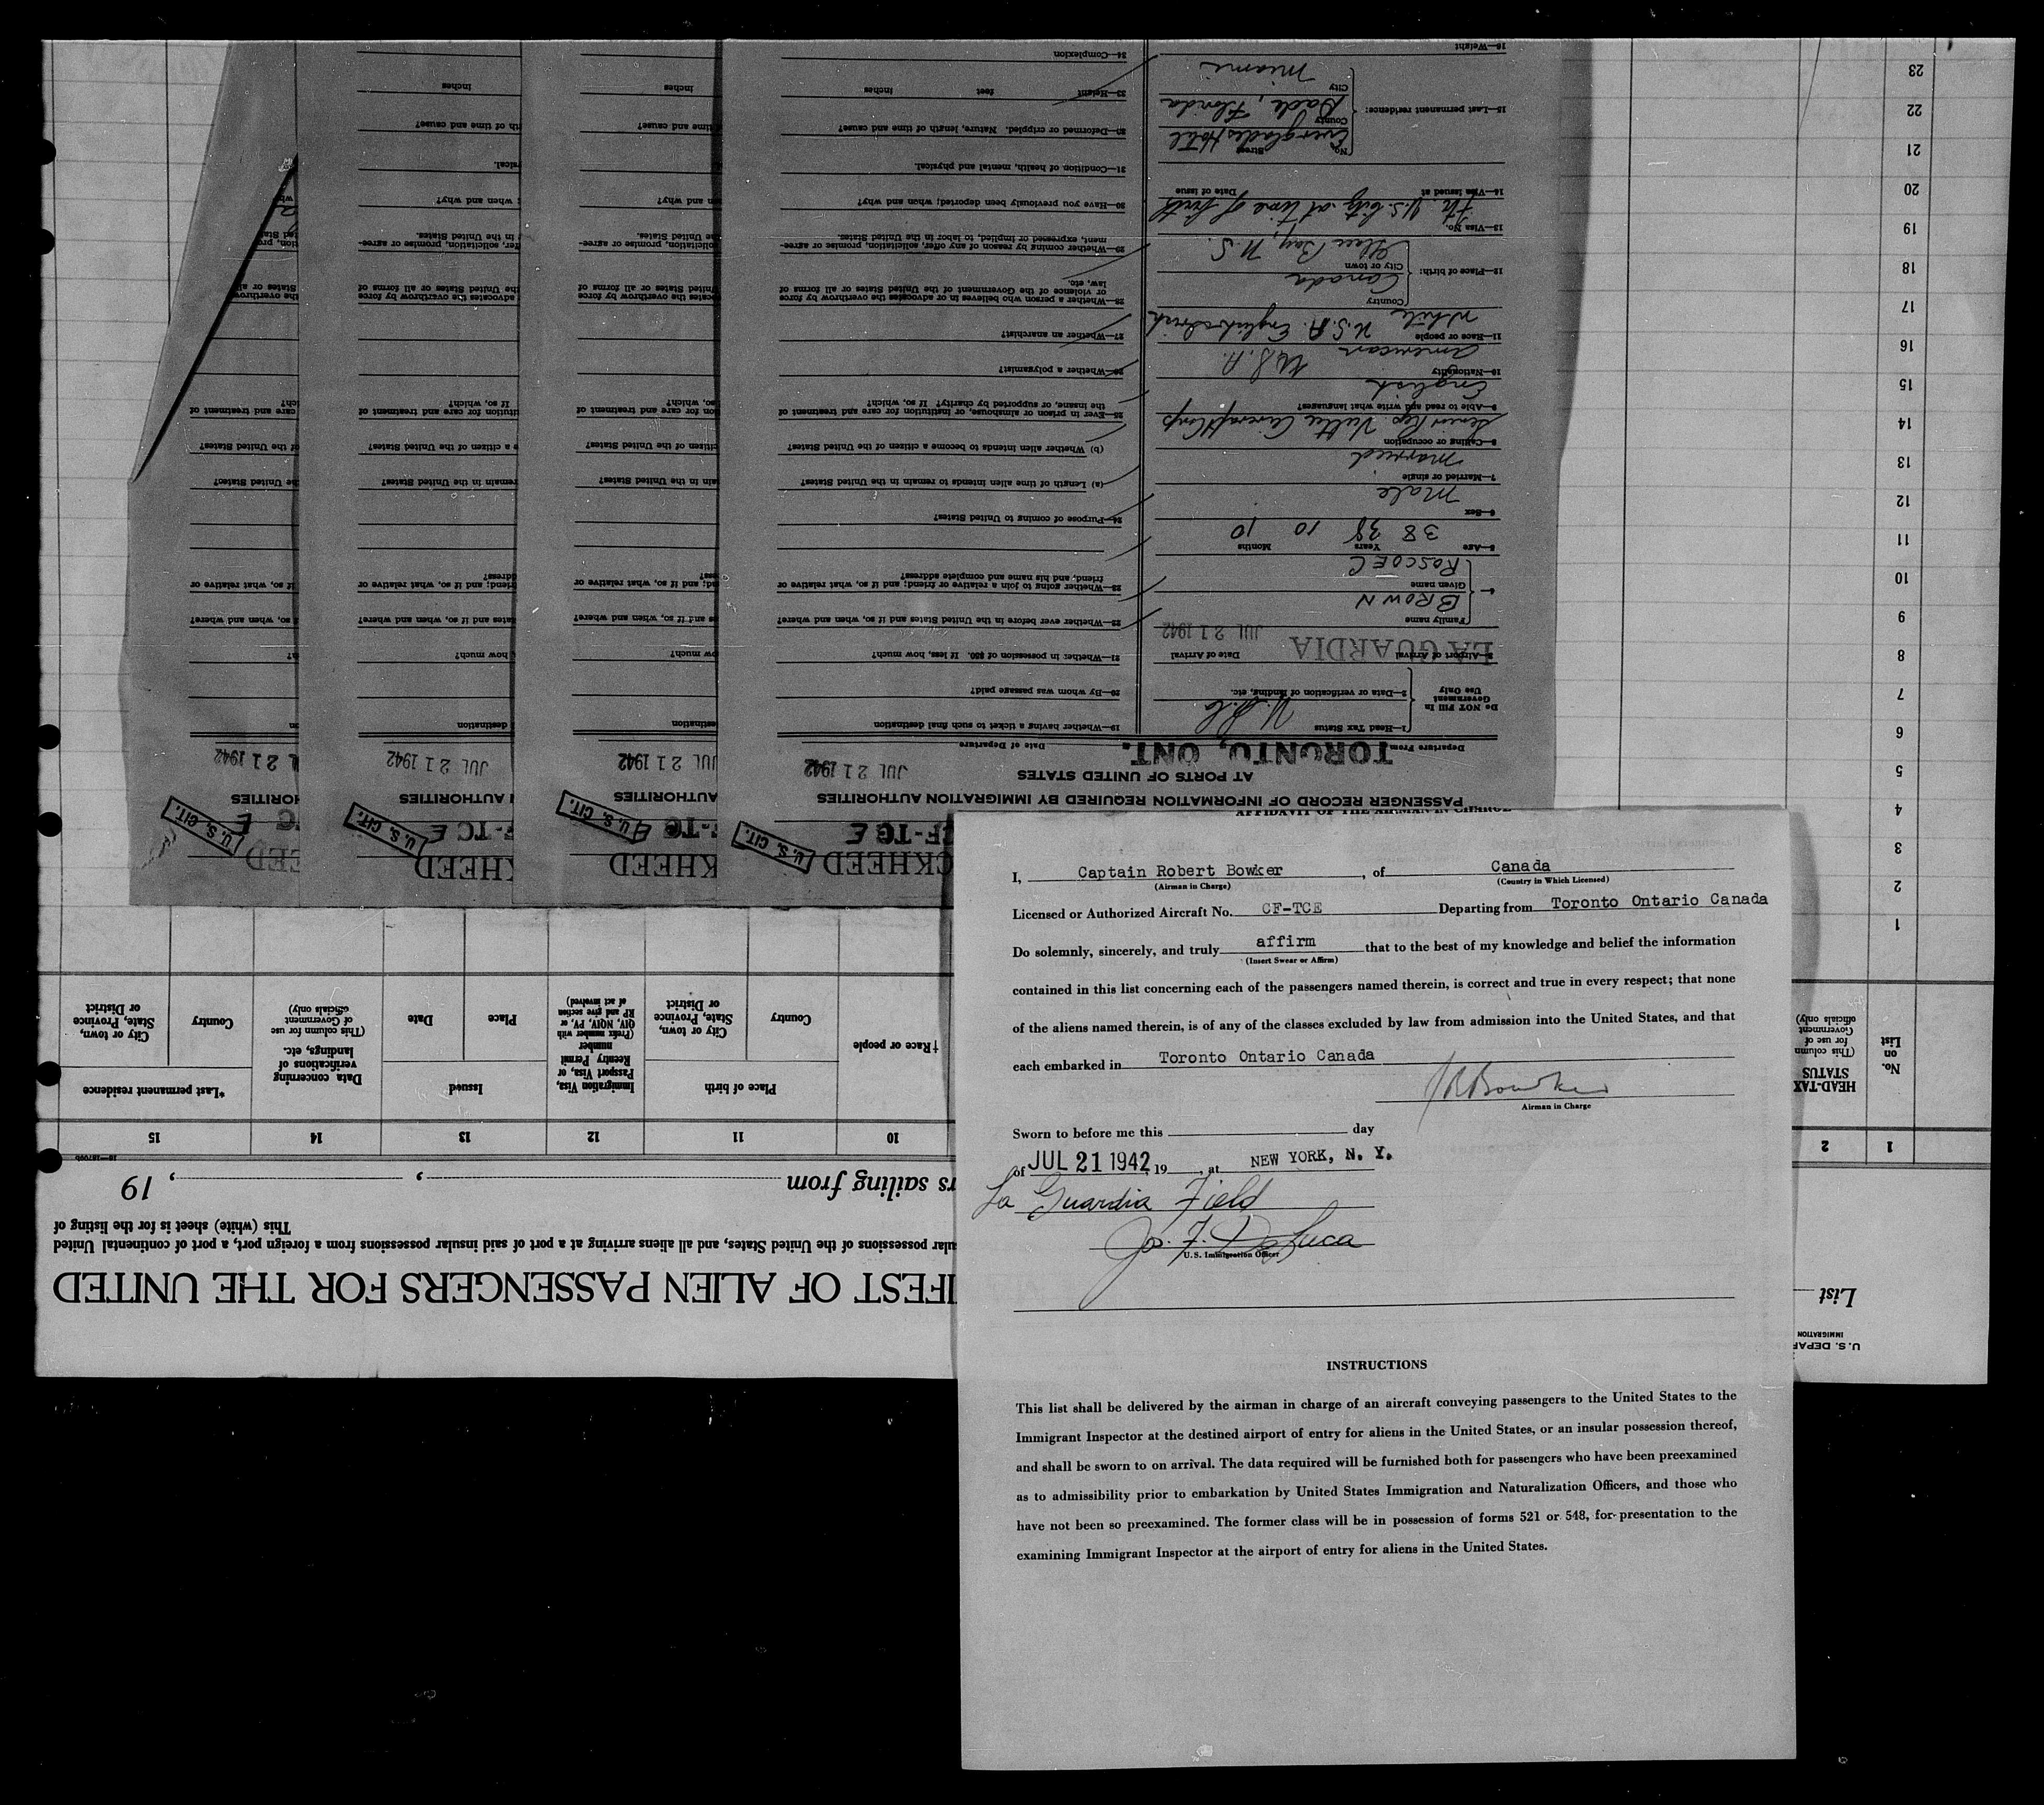 AFFIDAVIT OF THE AIRMAN IN CHARGE
I, Captain Robert Bowker, of Canada
(Airman in Charge) (Country in Which Licensed)
Licensed or Authorized Aircraft No. CF-TCE Departing from Toronto Ontario Canada
Do solemnly, sincerely, and truly affirm that to the best of my knowledge and belief the information
(Insert Swear or Affirm)
contained in this list concerning each of the passengers named therein, is correct and true in every respect; that none
of the aliens named therein, is of any of the classes excluded by law from admission into the United States, and that
each embarked in Toronto Ontario Canada
Airman in Charge
Sworn to before me this day
of JUL 21 1942, 19 , at NEW YORK, N. Y.
La Guardia Field
Jos. F. DeLuca
U.S. Immigration Officer
INSTRUCTIONS
This list shall be delivered by the airman in charge of an aircraft conveying passengers to the United States to the
Immigrant Inspector at the destined airport of entry for aliens in the United States, or an insular possession thereof,
and shall be sworn to on arrival. The data required will be furnished both for passengers who have been preexamined
as to admissibility prior to embarkation by United States Immigration and Naturalization Officers, and those who
have not been so preexamined. The former class will be in possession of forms 521 or 548, for presentation to the
examining Immigrant Inspector at the airport of entry for aliens in the United States.
U.S. DEPAR
IMMIGRATION
List
IFEST OF ALIEN PASSENGERS FOR THE UNITED
ular possessions of the United States, and all aliens arriving at a port of said insular possessions from a foreign port, a port of continental United
This (white) sheet is for the listing of
rs sailing from , , 19
1 2 10 11 12 13 14 15
No. on List
HEAD-TAX STATUS
(This column for use of Government officials only)
†Race or people
Place of birth
Country
City or town, State, Province or District
Immigration Visa, Passport Visa, or Reentry Permit number
(Prefix number with QIV, NQIV, PV, or RP and give section of act involved)
Issued
Place
Date
Data concerning verifications of landings, etc.
(This column for use of Government officials only)
*Last permanent residence
Country
City or town, State, Province or District
1
2
3
4
5
6
7
8
9
10
11
12
13
14
15
16
17
18
19
20
21
22
23
CKHEED CF-TCE
U.S. CIT.
PASSENGER RECORD OF INFORMATION REQUIRED BY IMMIGRATION AUTHORITIES
AT PORTS OF UNITED STATES
Departure From TORONTO, ONT. Date of Departure JUL 21 1942
Do NOT Fill In Government Use Only
1—Head Tax Status
2—Data or verification of landing, etc.
3—Airport of Arrival LA GUARDIA Date of Arrival JUL 21 1942
4 Family name BROWN
Given name ROSCOE C
5—Age 38 38 Years 10 10 Months
6—Sex Male
7—Married or single Married
8—Calling or occupation Senior Rep Vultee Aircraft Corp
9—Able to read and write what languages? English
10—Nationality American U.S.A.
11—Race or people White U.S.A. English-Irish
12—Place of birth: Country Canada
City or town Glace Bay, N.S.
13—Visa No. U.S. City. at time of birth
14—Visa issued at Date of issue
15—Last permanent residence: No. Street Everglades Hotel
County Dade, Florida
City Miami
16—Weight
19—Whether having a ticket to such final destination
20—By whom was passage paid?
21—Whether in possession of $50. If less, how much?
22—Whether ever before in the United States and if so, when and where?
23—Whether going to join a relative or friend; and if so, what relative or
friend, and his name and complete address?
24—Purpose of coming to United States?
(a) Length of time alien intends to remain in the United States?
(b) Whether alien intends to become a citizen of the United States?
25—Ever in prison or almshouse, or institution for care and treatment of
the insane, or supported by charity? If so, which?
26—Whether a polygamist?
27—Whether an anarchist?
28—Whether a person who believes in or advocates the overthrow by force
or violence of the Government of the United States or all forms of
law, etc.
29—Whether coming by reason of any offer, solicitation, promise or agree-
ment, expressed or implied, to labor in the United States.
30—Have you previously been deported; when and why?
31—Condition of health, mental and physical.
32—Deformed or crippled. Nature, length of time and cause?
33—Height feet inches
34—Complexion
KHEED F-TCE
U.S. CIT.
AUTHORITIES
JUL 21 1942
KHEED F-TCE
U.S. CIT.
AUTHORITIES
JUL 21 1942
EED
U.S. CIT.
HORITIES
JUL 21 1942